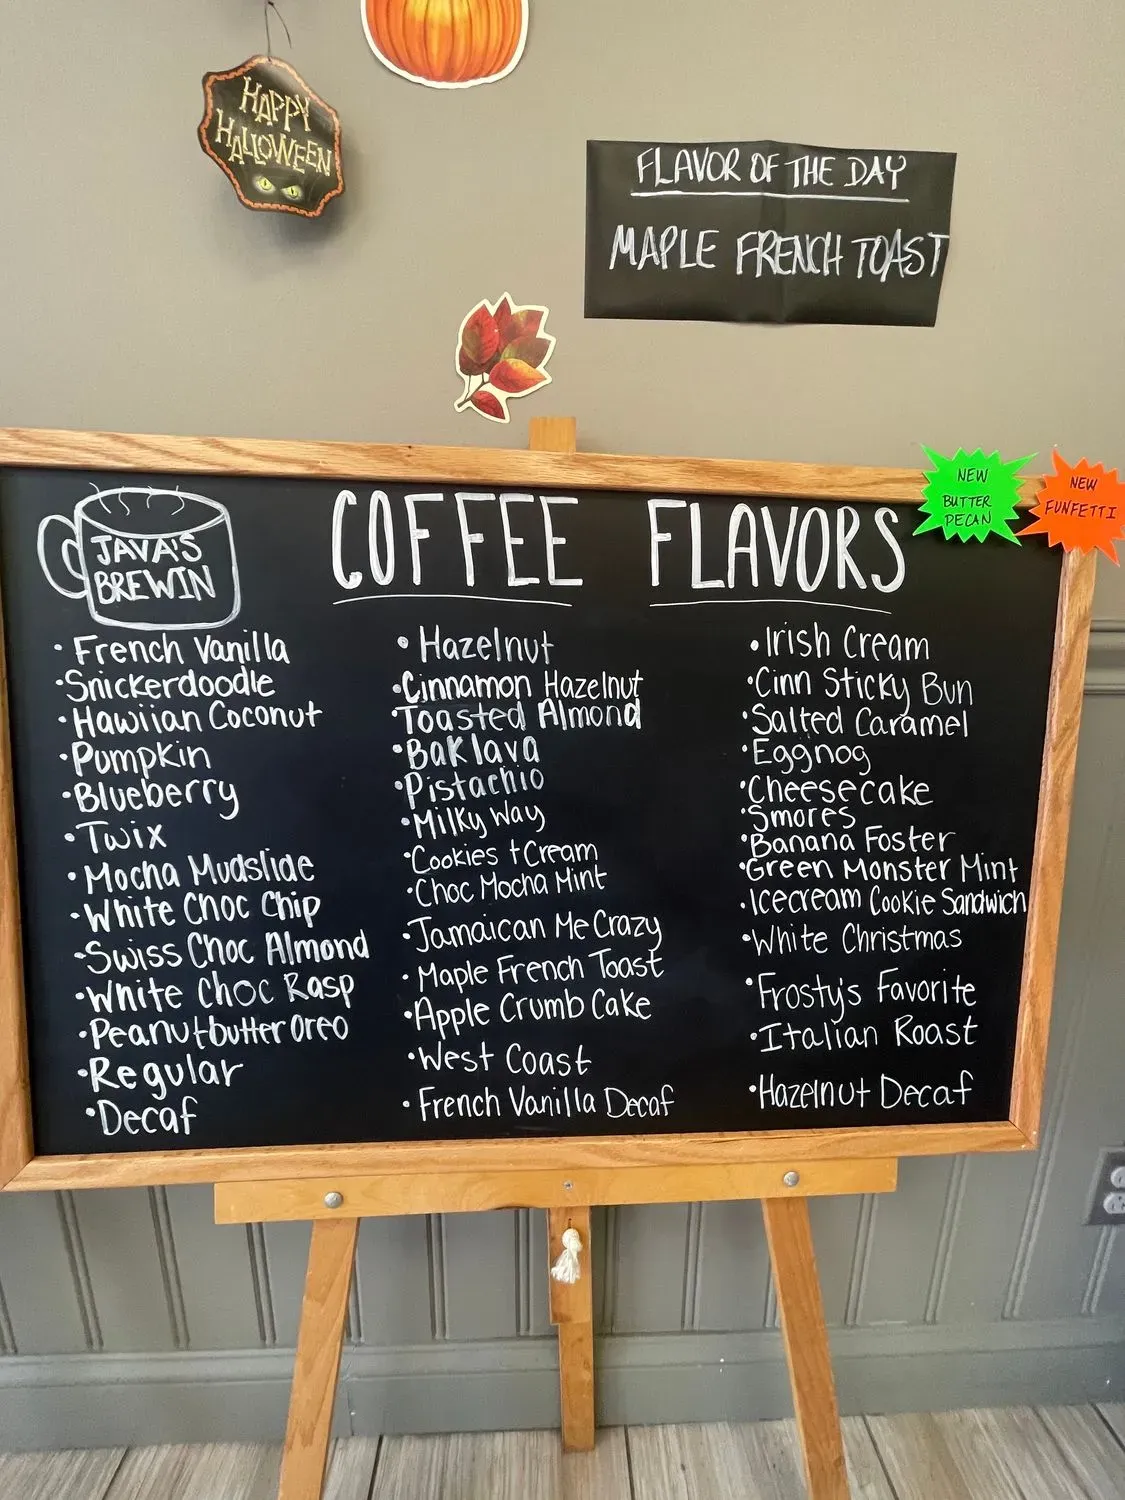 HAPPY
HALLOWEEN
FLAVOR OF THE DAY
MAPLE FRENCH TOAST
NEW
BUTTER
PECAN
NEW
FUNFETTI
JAVA'S
BREWIN
COFFEE FLAVORS
• French Vanilla
• Snickerdoodle
• Hawiian Coconut
• Pumpkin
• Blueberry
• Twix
• Mocha Mudslide
• White Choc Chip
• Swiss Choc Almond
• White Choc Rasp
• Peanutbutter Oreo
• Regular
• Decaf
• Hazelnut
• Cinnamon Hazelnut
• Toasted Almond
• Baklava
• Pistachio
• Milky Way
• Cookies + Cream
• Choc Mocha Mint
• Jamaican Me Crazy
• Maple French Toast
• Apple Crumb Cake
• West Coast
• French Vanilla Decaf
• Irish Cream
• Cinn Sticky Bun
• Salted Caramel
• Eggnog
• Cheesecake
• Smores
• Banana Foster
• Green Monster Mint
• Icecream Cookie Sandwich
• White Christmas
• Frosty's Favorite
• Italian Roast
• Hazelnut Decaf